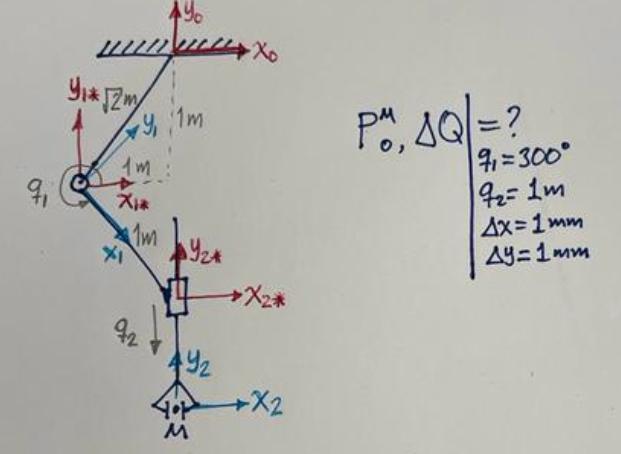 y₀
x₀
y₁*
√2m
y₁
1m
1m
q₁
x₁*
x₁
1m
y₂*
x₂*
q₂
y₂
x₂
M
P₀ᴹ, ΔQ | = ?
q₁ = 300°
q₂ = 1m
Δx = 1mm
Δy = 1mm